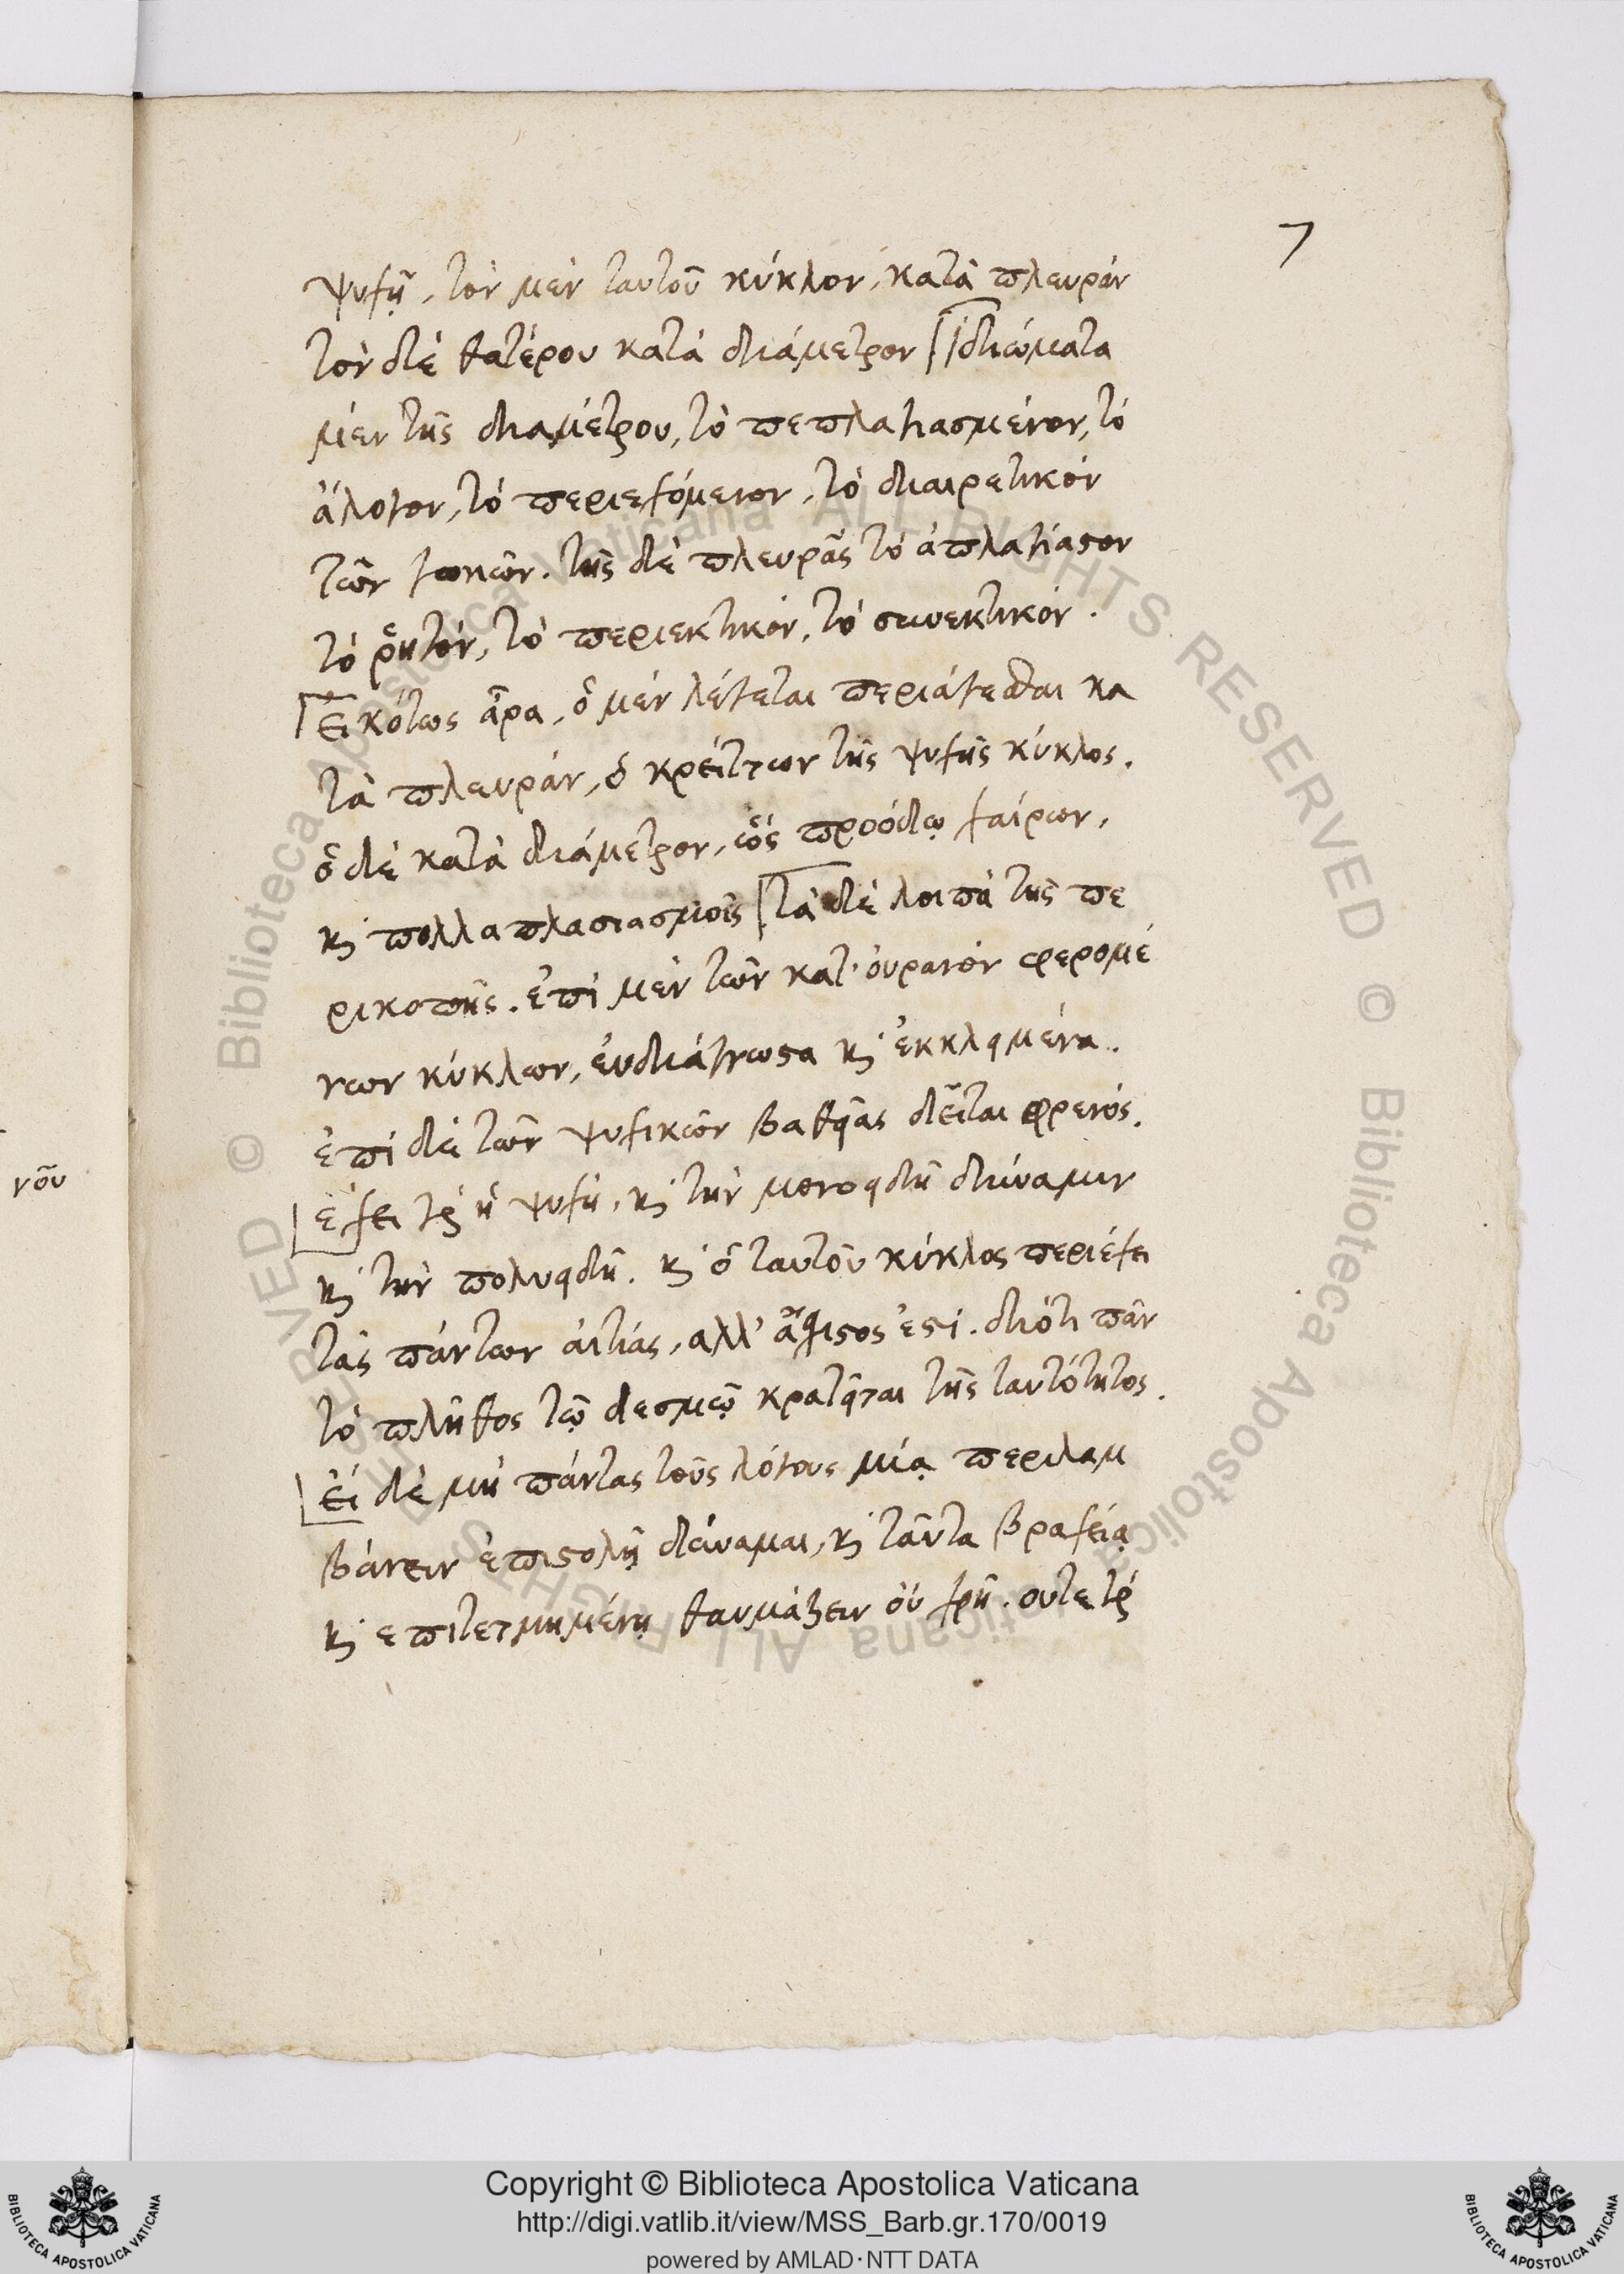 7
ψυχῇ, τὸν μὲν ταυτοῦ κύκλον, κατὰ πλευράν
τὸν δὲ θατέρου κατὰ διάμετρον ἰδιώματα
μὲν τῆς διαμέτρου, τὸ πεπλαγιασμένον, τὸ
ἄλογον, τὸ περιεχόμενον, τὸ διαιρετικὸν
τῶν γωνιῶν. τῆς δὲ πλευρᾶς τὸ ἀπλαγίαστον
τὸ ῥητόν, τὸ περιεκτικόν, τὸ συνεκτικόν.
Εἰκότως ἄρα, ὁ μὲν λέγεται περιάγεσθαι κα
τὰ πλευράν, ὁ κρείττων τῆς ψυχῆς κύκλος.
ὁ δὲ κατὰ διάμετρον, ὡς προόδῳ χαίρων,
κ πολλαπλασιασμοῖς τὰ δὲ λοιπὰ τῆς πε
ρικοπῆς. ἐπὶ μὲν τῶν κατ' οὐρανὸν φερομέ
νων κύκλων, εὐδιάγνωστα κ ἐκκείμενα.
ἐπὶ δὲ τῶν ψυχικῶν βαθείας δεῖται φρενός.
ἔχει γὰρ ἡ ψυχή, κ τὴν μονοειδῆ δύναμιν
κ τὴν πολυειδῆ. κ ὁ ταυτοῦ κύκλος περιέχει
τὰς πάντων αἰτίας, αλλ' ἄσχιστος ἐστί. διότι πᾶν
τὸ πλῆθος τῷ δεσμῷ κρατεῖται τῆς ταυτότητος.
εἰ δὲ μὴ πάντας τοὺς λόγους μίᾳ περιλαμ
βάνειν ἐπιστολῇ δύναμαι, κ ταῦτα βραχείᾳ
κ επιτετμημένῃ θαυμάζειν οὐ χρή. ουτε γὰρ
νοῦ
Copyright © Biblioteca Apostolica Vaticana
http://digi.vatlib.it/view/MSS_Barb.gr.170/0019
powered by AMLAD·NTT DATA
BIBLIOTECA APOSTOLICA VATICANA
BIBLIOTECA APOSTOLICA VATICANA
© Biblioteca Apostolica Vaticana ALL RIGHTS RESERVED © Biblioteca Apostolica Vaticana ALL RIGHTS RESERVED